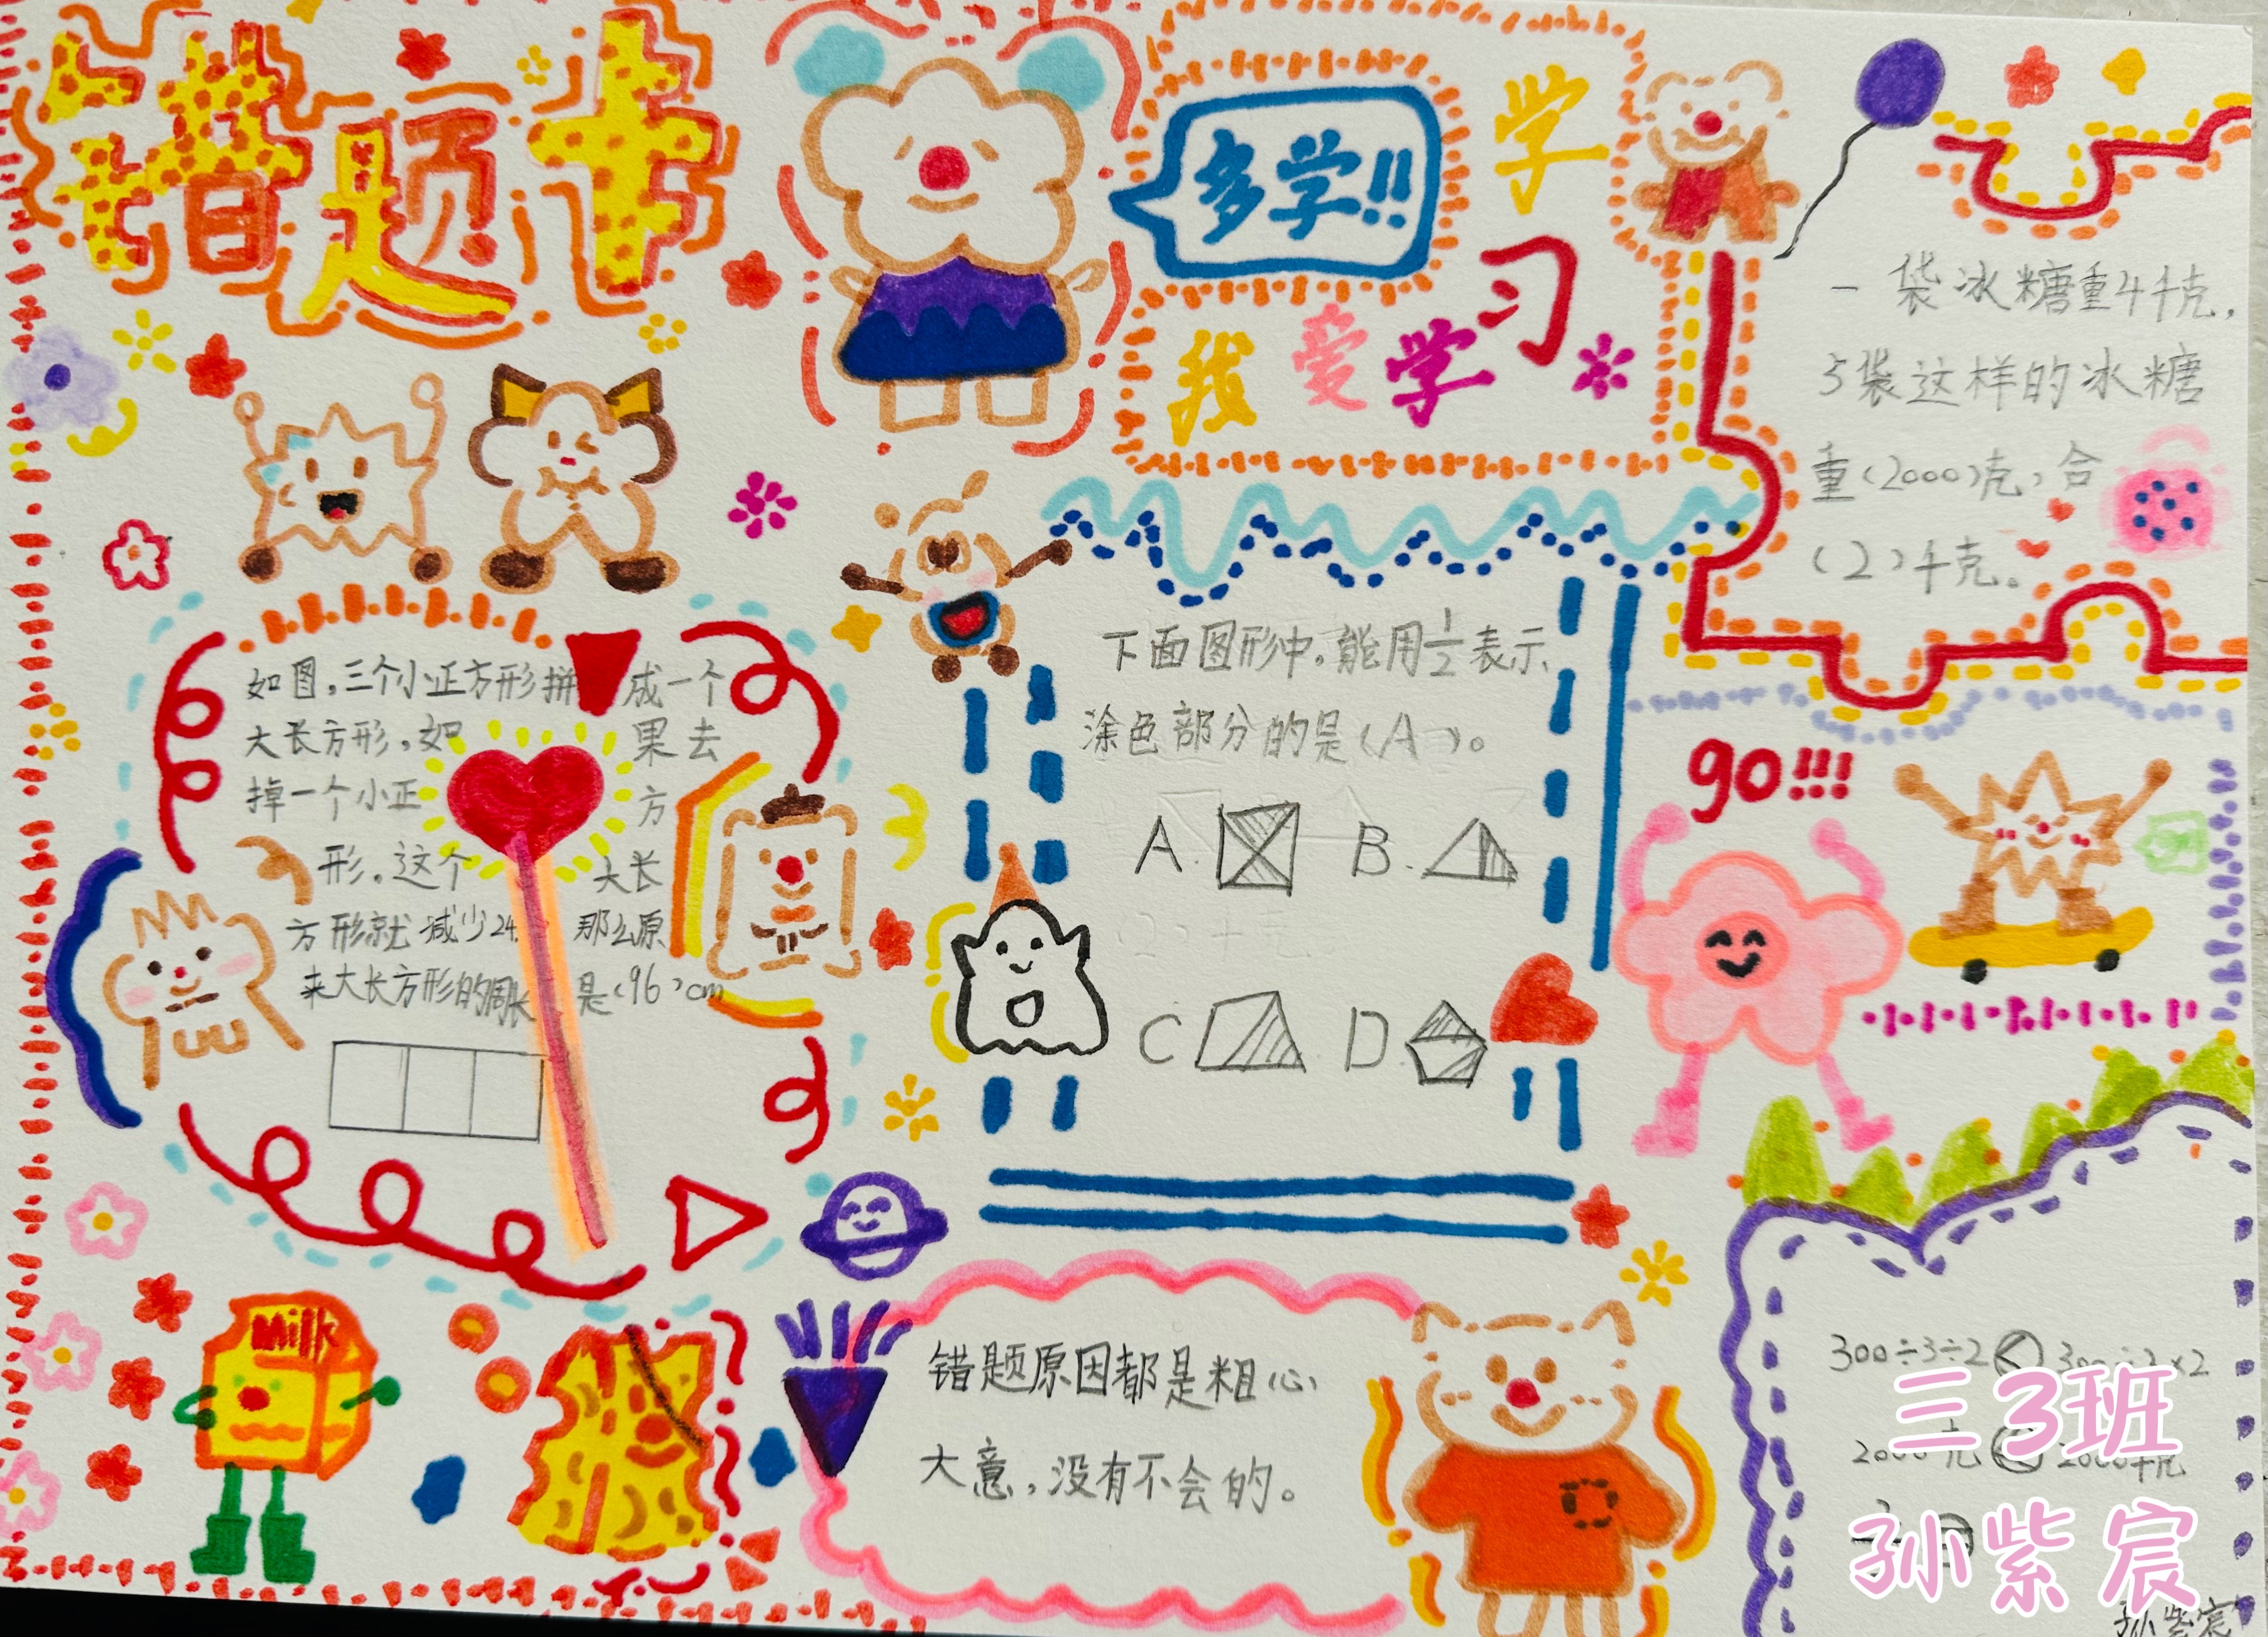 错题卡
多学!!
学
我爱学习
一袋冰糖重4千克,
5袋这样的冰糖
重(2000)克,合
(2)千克。
如图,三个小正方形拼成一个
大长方形,如果去
掉一个小正方
形。这个大长
方形就减少24 那么原
来大长方形的周长是(96)cm
下面图形中。能用1/2表示
涂色部分的是(A)。
A. B.
C D.
go!!!
Milk
错题原因都是粗心
大意,没有不会的。
300÷3÷2<
三3班
孙紫宸
孙紫宸